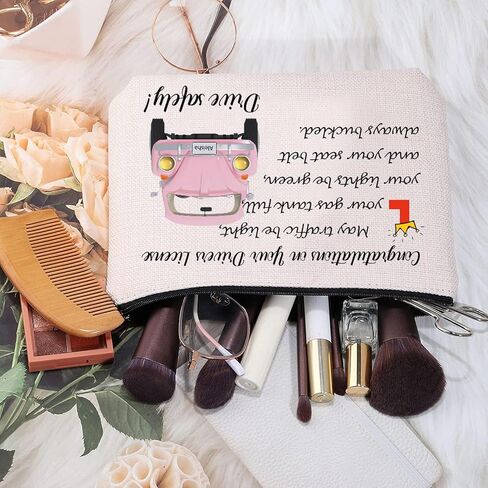 Congratulations on Your Drivers License
May traffic be light,
your gas tank full,
your lights be green,
and your seat belt
always buckled.
Drive safely!
Aleisha
L